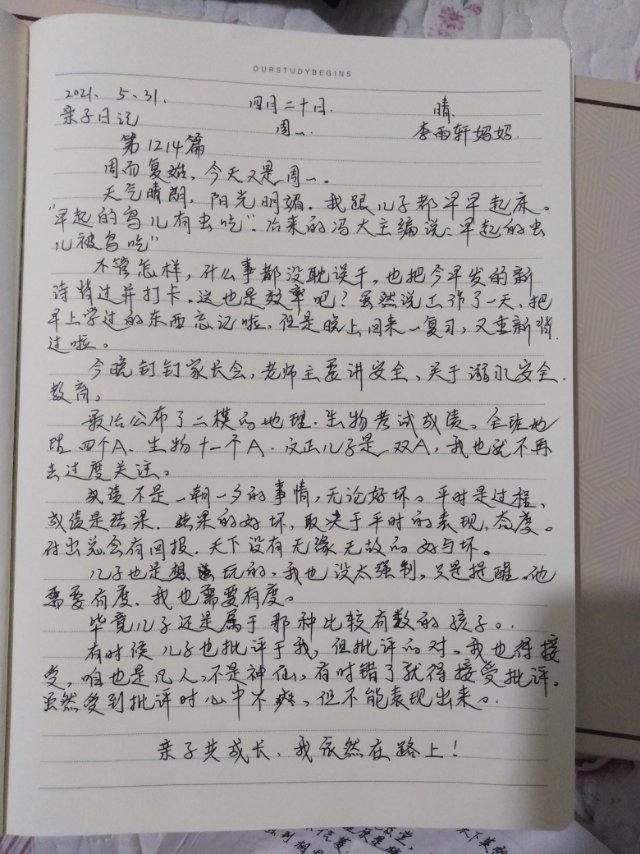 OURSTUDYBEGINS
2021、5、31. 四月二十日. 晴.
亲子日记 周一. 李雨轩妈妈.
第1214篇
周而复始,今天又是周一。
天气晴朗,阳光明媚。我跟儿子都早早起床。
"早起的鸟儿有虫吃".后来的冯大主编说:早起的虫
儿被鸟吃"
不管怎样,什么事都没耽误干,也把今早发的新
诗背过并打卡.这也是效率吧?虽然说工作了一天,把
早上学过的东西忘记啦,但是晚上回来一复习,又重新背
过啦。
今晚钉钉家长会,老师主要讲安全、关于溺水安全.
教育。
最后公布了二模的地理.生物考试成绩。全班地
理四个A.生物十一个A.反正儿子是双A,我也就不再
去过度关注。
成绩不是一朝一夕的事情,无论好坏。平时是过程、
成绩是结果.结果的好坏,取决于平时的表现、态度。
付出总会有回报.天下没有无缘无故的好与坏。
儿子也是想玩的。我也没太强制,只是提醒。他
需要有度.我也需要有度。
毕竟儿子还是属于那种比较有数的孩子。
有时候儿子也批评于我,但批评的对。我也得接
受,咱也是凡人,不是神仙,有时错了就得接受批评。
虽然受到批评时心中不,但不能表现出来。
亲子共成长、我依然在路上!